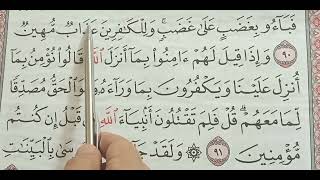 فَبَآءُو بِغَضَبٍ عَلَىٰ غَضَبٍ ۚ وَلِلْكَـٰفِرِينَ عَذَابٌ مُّهِينٌ
٩٠ وَإِذَا قِيلَ لَهُمْ ءَامِنُوا۟ بِمَآ أَنزَلَ ٱللَّهُ قَالُوا۟ نُؤْمِنُ بِمَآ
أُنزِلَ عَلَيْنَا وَيَكْفُرُونَ بِمَا وَرَآءَهُۥ وَهُوَ ٱلْحَقُّ مُصَدِّقًا
لِّمَا مَعَهُمْ ۗ قُلْ فَلِمَ تَقْتُلُونَ أَنۢبِيَآءَ ٱللَّهِ قَبْلُ إِن كُنتُم
مُّؤْمِنِينَ ٩١ ۞ وَلَقَدْ بِٱلْبَيِّنَـٰتِ